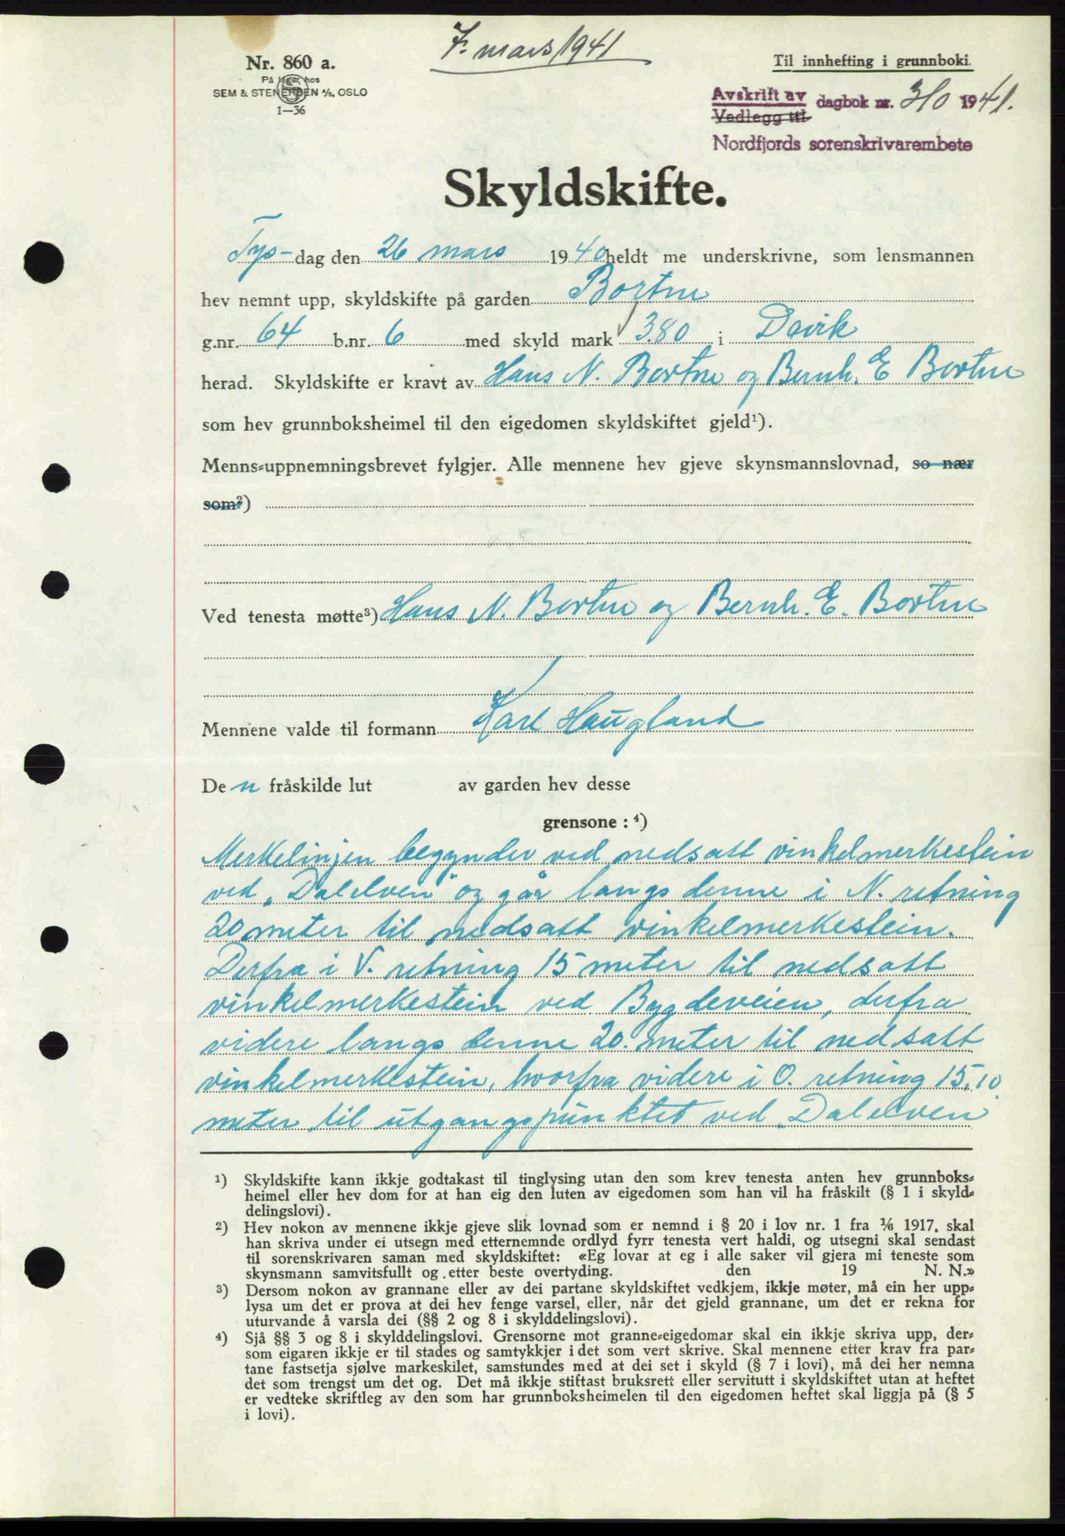 7. mars 1941
Nr. 860 a.
På lager hos
SEM & STENERSEN A/S, OSLO
1—36
Til innhefting i grunnboki.
Avskrift av
Vedlegg til
dagbok nr. 310 1941.
Nordfjords sorenskrivarembete
Skyldskifte.
Tys-dag den 26 mars 1940 heldt me underskrivne, som lensmannen
hev nemnt upp, skyldskifte på garden Bortne
g.nr. 64 b.nr. 6 med skyld mark 3.80 i Davik
herad. Skyldskifte er kravt av Hans N. Bortne og Bernh. E Bortne
som hev grunnboksheimel til den eigedomen skyldskiftet gjeld¹).
Menns-uppnemningsbrevet fylgjer. Alle mennene hev gjeve skynsmannslovnad, so nær
som²)
Ved tenesta møtte³) Hans N. Bortne og Bernh. E. Bortne
Mennene valde til formann Karl Haugland
De n fråskilde lut av garden hev desse
grensone : ⁴)
Merkelinjen begynder ved nedsatt vinkelmerkestein
ved „Dalelven" og går langs denne i N. retning
20 meter til nedsatt vinkelmerkestein.
Derfra i V. retning 15 meter til nedsatt
vinkelmerkestein ved Bygdeveien, derfra
videre langs denne 20. meter til nedsatt
vinkelmerkestein, hvorfra videre i O. retning 15,10
meter til utgangspunktet ved „Dalelven
¹) Skyldskifte kann ikkje godtakast til tinglysing utan den som krev tenesta anten hev grunnboks-
heimel eller hev dom for at han eig den luten av eigedomen som han vil ha fråskilt (§ 1 i skyld-
delingslovi).
²) Hev nokon av mennene ikkje gjeve slik lovnad som er nemnd i § 20 i lov nr. 1 fra 1/6 1917, skal
han skriva under ei utsegn med etternemnde ordlyd fyrr tenesta vert haldi, og utsegni skal sendast
til sorenskrivaren saman med skyldskiftet: «Eg lovar at eg i alle saker vil gjera mi teneste som
skynsmann samvitsfullt og etter beste overtyding. den 19 N. N.»
³) Dersom nokon av grannane eller av dei partane skyldskiftet vedkjem, ikkje møter, må ein her upp-
lysa um det er prova at dei hev fenge varsel, eller, når det gjeld grannane, um det er rekna for
uturvande å varsla dei (§§ 2 og 8 i skylddelingslovi).
⁴) Sjå §§ 3 og 8 i skylddelingslovi. Grensorne mot granne-eigedomar skal ein ikkje skriva upp, der-
som eigaren ikkje er til stades og samtykkjer i det som vert skrive. Skal mennene etter krav fra par-
tane fastsetja sjølve markeskilet, samstundes med at dei set i skyld (§ 7 i lovi), må dei her nemna
det som trengst um det og. Det må ikkje stiftast bruksrett eller servitutt i skyldskiftet utan at heftet
er vedteke skriftleg av den som har grunnboksheimelen til den eigedomen heftet skal liggja på (§ 5
i lovi).